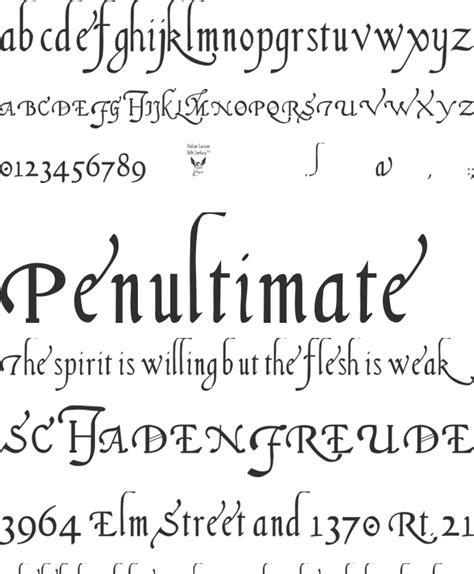 abcdefghijklmnopqrstuvwxyz
ABCDEFGHIJKLMNOPQRSTUVWXYZ
0123456789 Italian Cursive 16th Century . a , :;
Penultimate
The spirit is willing but the flesh is weak
SCHADENFREUDE
3964 Elm Street and 1370 Rt. 21